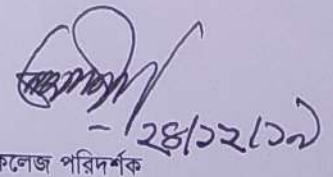 ২৪/১২/১৯
কলেজ পরিদর্শক